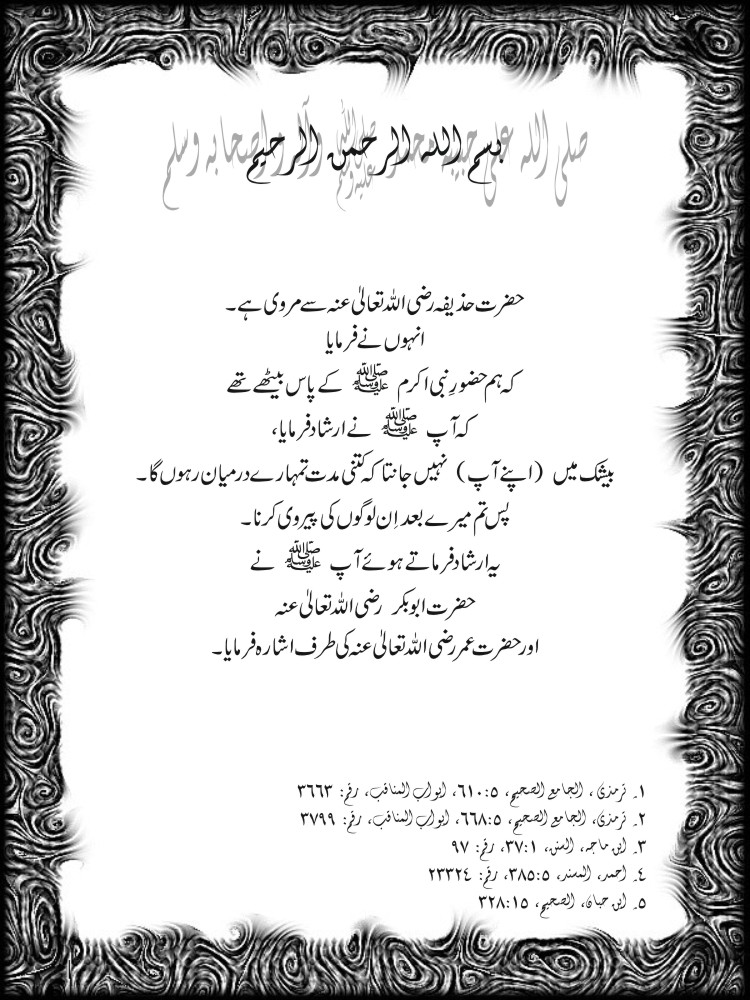 بسم الله الرحمن الرحيم
صلى الله على حبيبه محمد ﷺ وآله واصحابه وسلم
حضرت حذیفہ رضی اللہ تعالیٰ عنہ سے مروی ہے۔
انہوں نے فرمایا
کہ ہم حضورِ نبی اکرم ﷺ کے پاس بیٹھے تھے
کہ آپ ﷺ نے ارشاد فرمایا،
بیشک میں (اپنے آپ) نہیں جانتا کہ کتنی مدت تمہارے درمیان رہوں گا۔
پس تم میرے بعد اِن لوگوں کی پیروی کرنا۔
یہ ارشاد فرماتے ہوئے آپ ﷺ نے
حضرت ابوبکر رضی اللہ تعالیٰ عنہ
اور حضرت عمر رضی اللہ تعالیٰ عنہ کی طرف اشارہ فرمایا۔
١۔ ترمذی، الجامع الصحیح، ٥:٦١٠، ابواب المناقب، رقم: ٣٦٦٣
٢۔ ترمذی، الجامع الصحیح، ٥:٦٦٨، ابواب المناقب، رقم: ٣٧٩٩
٣۔ ابن ماجہ، السنن، ١:٣٧، رقم: ٩٧
٤۔ احمد، المسند، ٥:٣٨٥، رقم: ٢٣٣٢٤
٥۔ ابن حبان، الصحیح، ١٥:٣٢٨